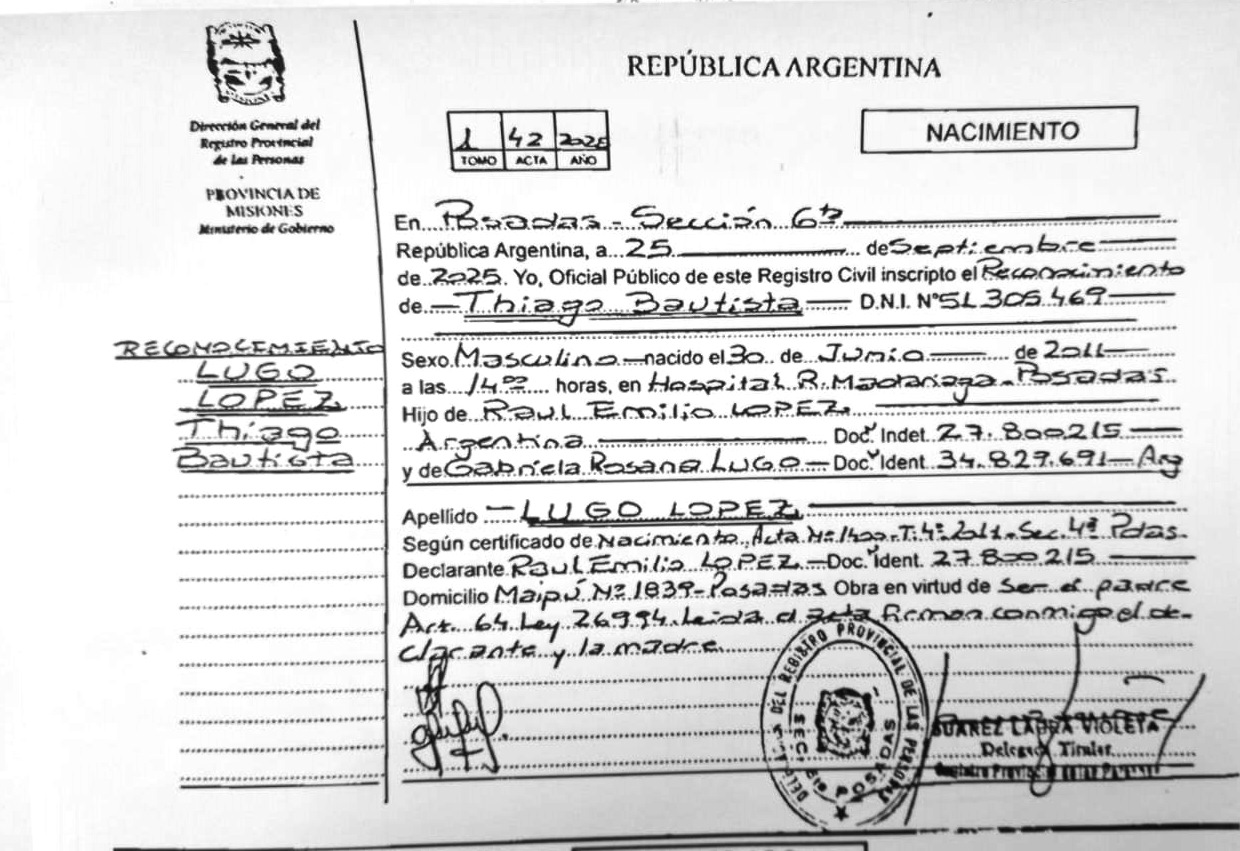 REPÚBLICA ARGENTINA
Dirección General del
Registro Provincial
de las Personas
PROVINCIA DE
MISIONES
Ministerio de Gobierno
1 42 2025
TOMO ACTA AÑO
NACIMIENTO
En Posadas - Sección 6ta
República Argentina, a 25 de Septiembre
de 2025. Yo, Oficial Público de este Registro Civil inscripto el Reconocimiento
de Thiago Bautista D.N.I. Nº 51.305.469
RECONOCIMIENTO
LUGO
LOPEZ
Thiago
Bautista
Sexo Masculino nacido el 30 de Junio de 2011
a las 14:00 horas, en Hospital R. Madariaga - Posadas
Hijo de Raul Emilio LOPEZ
Argentina Doc. Indet 27.800215
y de Gabriela Rosana LUGO Doc. Ident. 34.829.691 - Arg
Apellido LUGO LOPEZ
Según certificado de Nacimiento, Acta Nº 1400 - T: 4º - 2011 - Sec. 4ª Pdas.
Declarante Raul Emilio LOPEZ Doc. Ident. 27.800215
Domicilio Maipú Nº 1839 - Posadas Obra en virtud de Ser el padre
Art. 64 Ley 26994. Leida el acta firman conmigo el de-
clarante y la madre.
DEL REGISTRO PROVINCIAL DE LAS PERSONAS
SECC. 6ta POSADAS
SUAREZ VIOLETA
Delegad Titular
Registro Provincial de las Personas